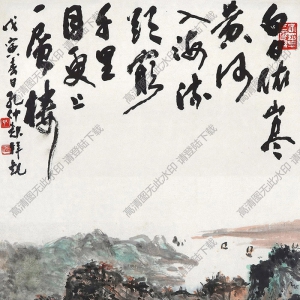 白日依山盡
黄河
入海流
欲窮
千里
目更上
一層樓
戊寅春日孔仲起
高清图无此水印 请登陆下载
高清图无此水印 请登陆下载
高清图无此水印 请登陆下载
高清图无此水印 请登陆下载